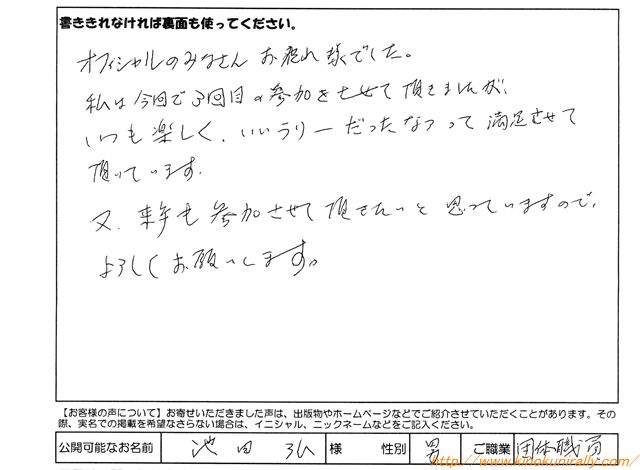 書ききれなければ裏面も使ってください。
オフィシャルのみなさん お疲れ様でした。
私は今回で3回目の参加をさせて頂きましたが、
いつも楽しく、いいラリーだったなって満足させて
頂いています。
又、来年も参加させて頂きたいと思っていますので、
よろしくお願いします。
【お客様の声について】お寄せいただきました声は、出版物やホームページなどでご紹介させていただくことがあります。その
際、実名での掲載を希望なさらない場合は、イニシャル、ニックネームなどをご記入ください。
公開可能なお名前 池田 弘 様 性別 男 ご職業 団体職員
http://www.kinokunirally.com/